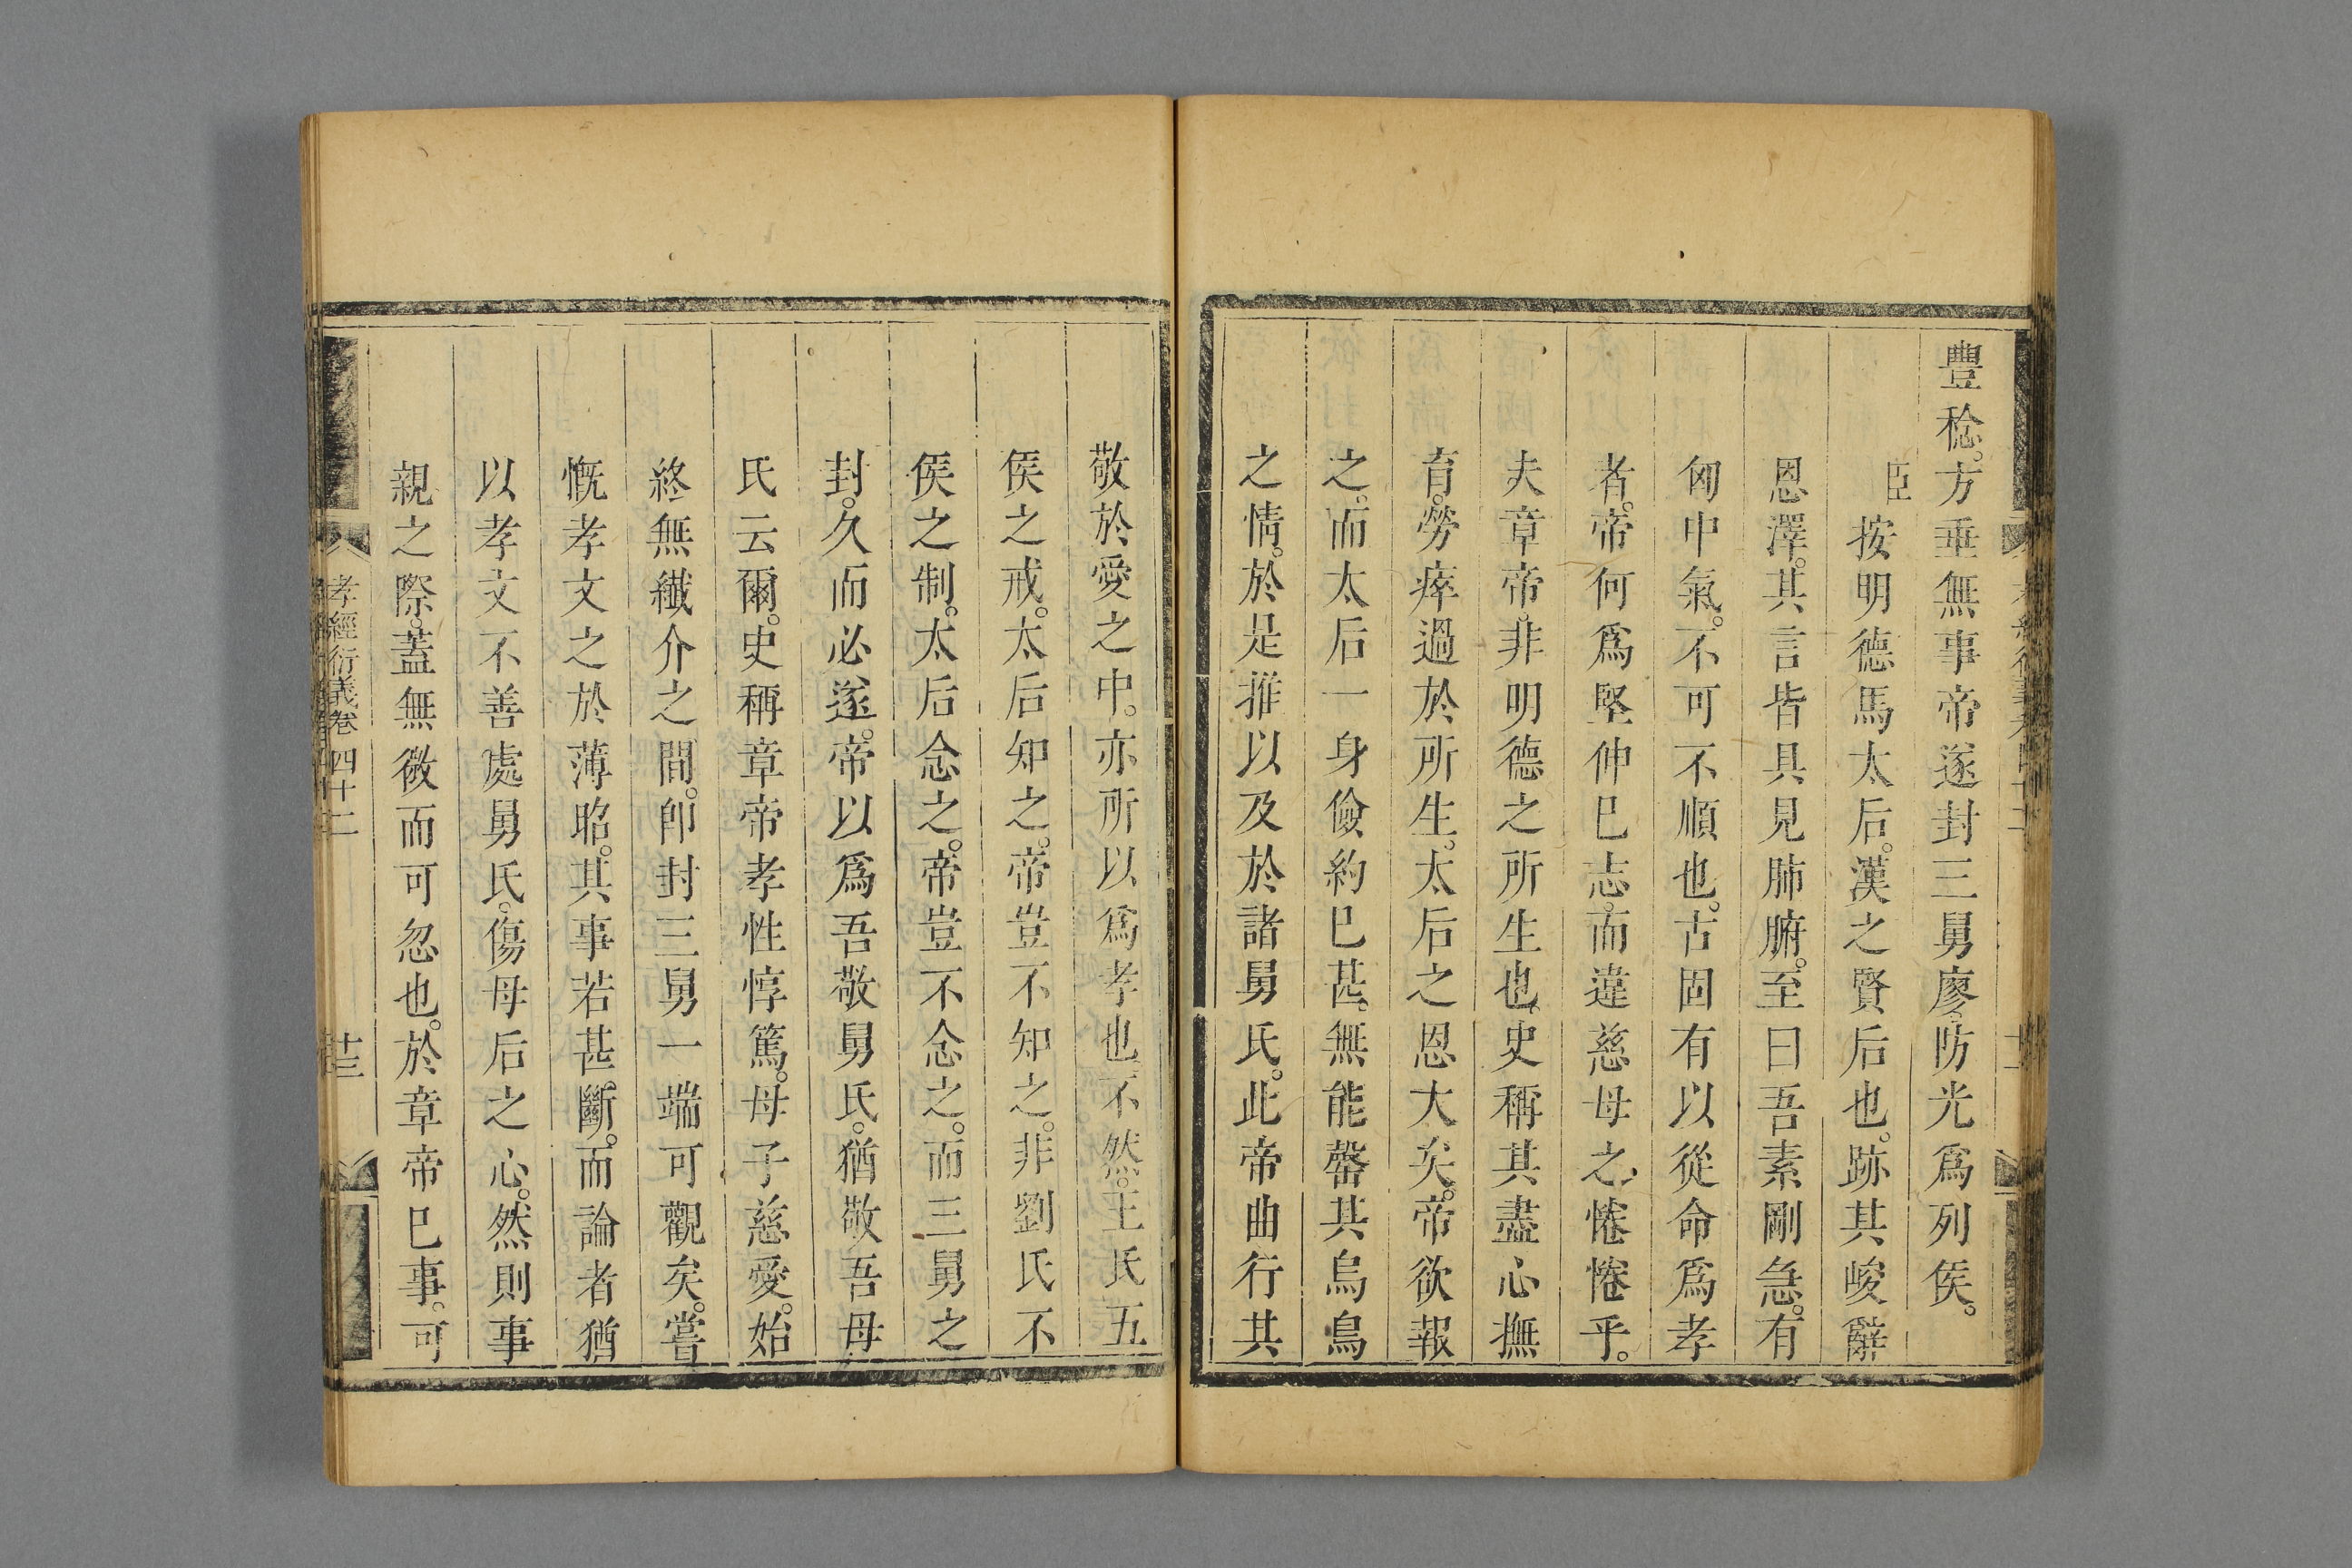 豐稔。方垂無事帝遂封三舅廖。防光爲列侯。
臣按明德馬太后。漢之賢后也。跡其峻辭
恩澤。其言皆具見肺腑。至曰吾素剛急。有
匈中氣。不可不順也。古固有以從命爲孝
者。帝何爲堅伸巳志。而違慈母之惓惓乎。
夫章帝。非明德之所生也。史稱其盡心撫
育。勞瘁過於所生。太后之恩大矣。帝欲報
之。而太后一身儉約巳甚。無能罄其烏鳥
之情。於是推以及於諸舅氏。此帝曲行其
敬於愛之中。亦所以爲孝也。不然。王氏五
侯之戒。太后知之。帝豈不知之。非劉氏不
侯之制。太后念之。帝豈不念之。而三舅之
封。久而必遂。帝以爲吾敬舅氏。猶敬吾母
氏云爾。史稱章帝孝性惇篤。母子慈愛。始
終無纖介之間。卽封三舅一端可觀矣。嘗
慨孝文之於薄昭。其事若甚斷。而論者猶
以孝文不善處舅氏。傷母后之心。然則事
親之際。蓋無微而可忽也。於章帝巳事。可
孝經衍義卷四十二
十三